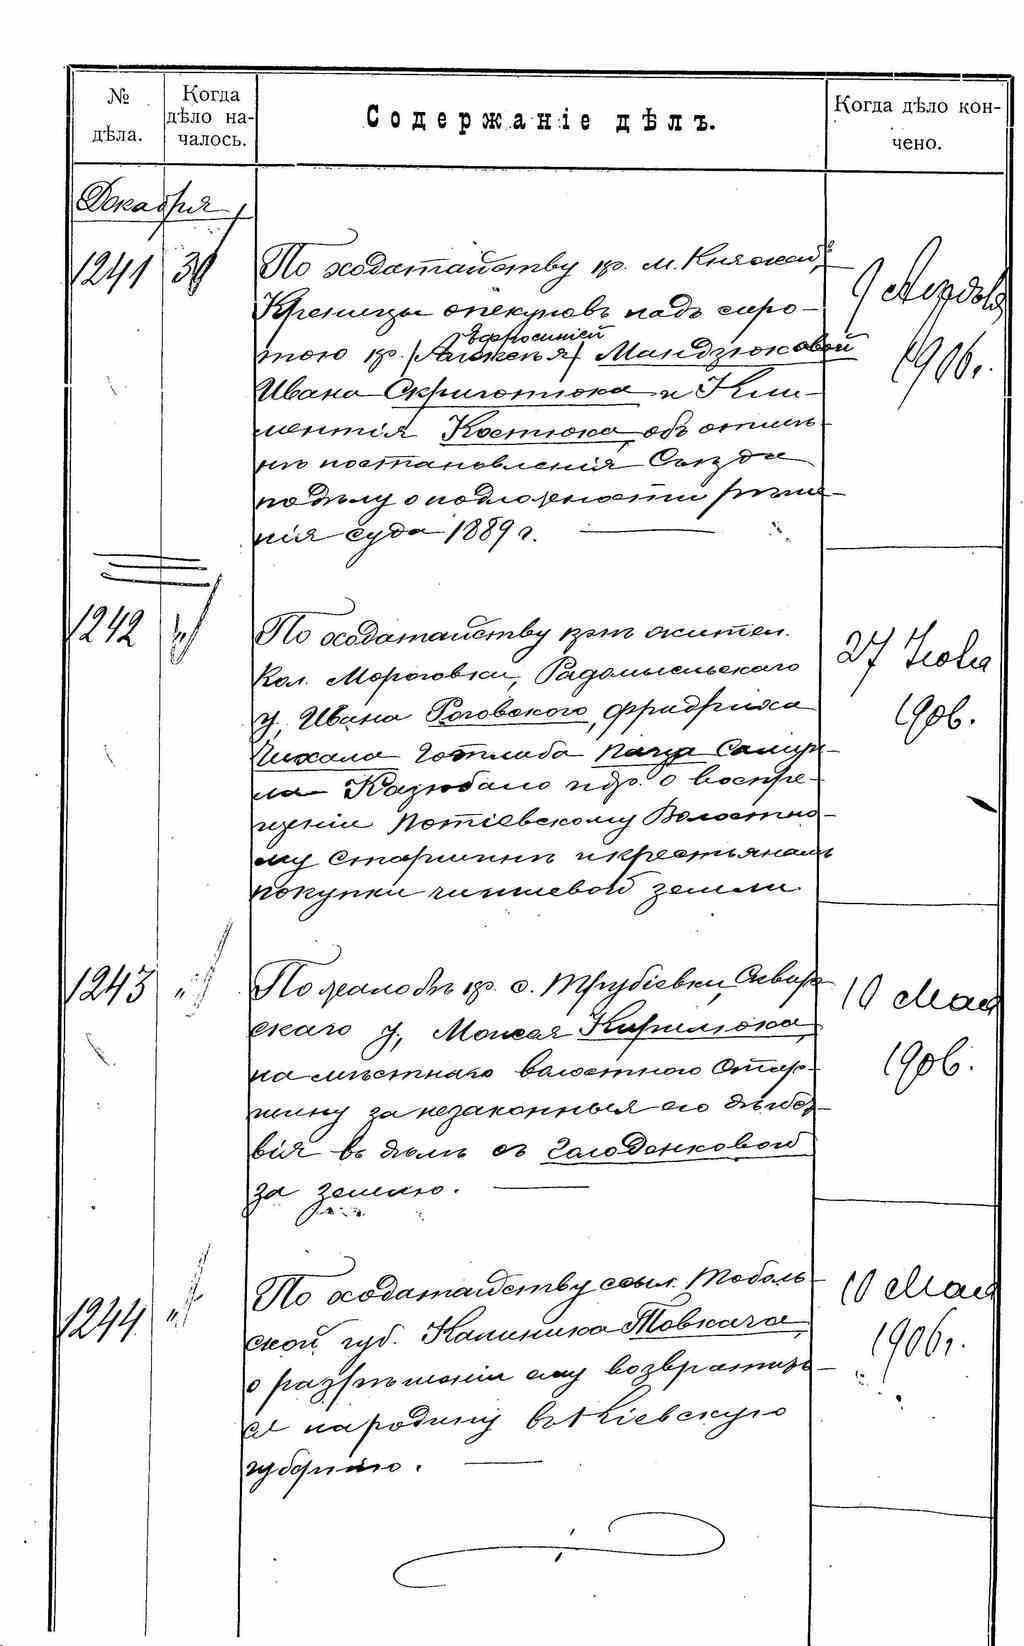 № дѣла.
Когда дѣло на-
чалось.
Содержаніе дѣлъ.
Когда дѣло кон-
чено.
Декабря
1241
По ходатайству кр. м. Княжей
Креницы опекуновъ надъ сиро-
Ефросиніей
тою кр. Мандзюковой
Ивана Скриготюка и Кли-
ментія Костюка, объ отмѣ-
нѣ постановленія Съѣзда
по дѣлу о подложности рѣше-
нія суда 1889 г.
9
1906 г.
1242
"
По ходатайству жител.
Кол. Мороговки, Радомысльскаго
у, Ивана Роговского, Фридриха
Чихала Готлиба Пача Самуи-
ла и др. о воспре-
щеніи Потіевскому Волостно-
му Старшинѣ и крестьянамъ
покупки чиншевой земли
27 Іюня
1906.
1243
"
По жалобѣ кр. с. Трубіевки, Сквир-
скаго у, Моисея Кирилюка,
на мѣстнаго волостного Стар-
шину за незаконныя его дѣйст-
вія въ дѣлѣ съ Голоденковой
за землю.
10 Мая
1906.
1244
"
По ходатайству ссыл. Тоболь-
ской губ. Калиника Товкача
о разрѣшеніи ему возвратить-
ся на родину въ Кіевскую
губернію.
10 Мая
1906 г.